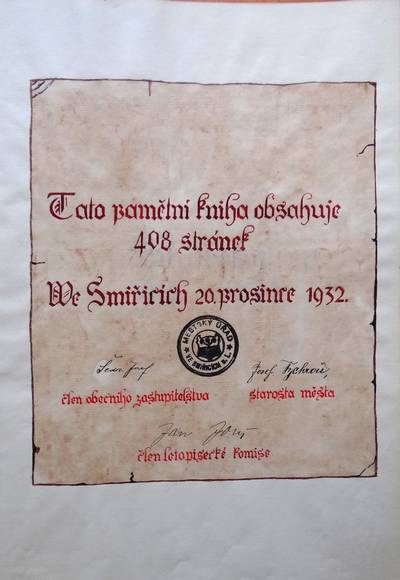 Tato pamětní kniha obsahuje
408 stránek
We Smiřicích 20. prosince 1932.
MĚSTSKÝ ÚŘAD
VE SMIŘICÍCH n. L.
Josef
člen obecního zastupitelstva
starosta města
Jan
člen letopisecké komise